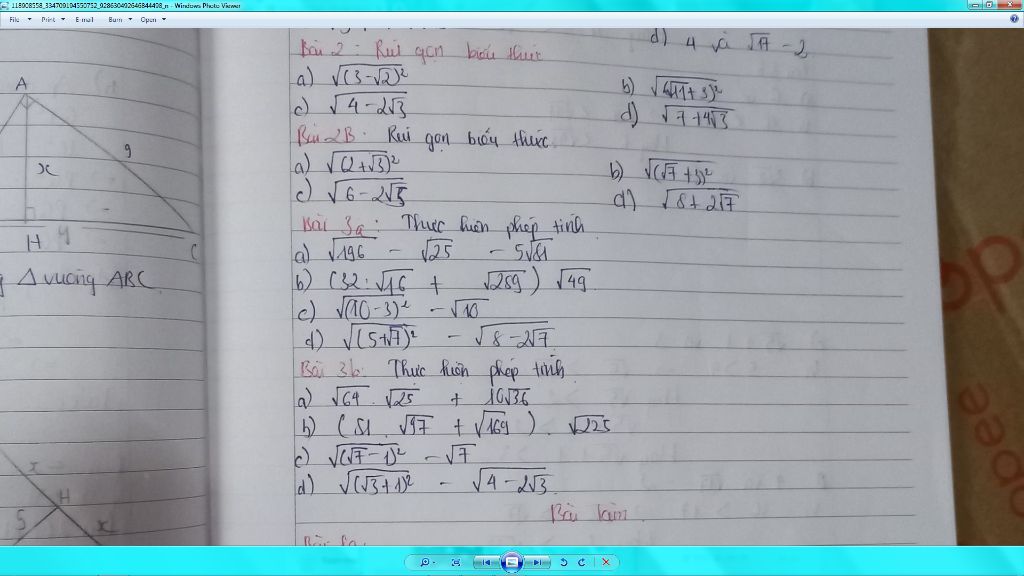 118908558_334709194550752_928630492646844498_n - Windows Photo Viewer
File Print E-mail Burn Open
d) 4 và √17 - 2
Bài 2: Rút gọn biểu thức
a) √(3-√2)²
b) √(√11+3)²
c) √4-2√3
d) √7+4√3
Bài 2B. Rút gọn biểu thức
a) √(2+√3)²
b) √(√7+3)²
c) √6-2√5
d) √8+2√7
Bài 3a: Thực hiện phép tính
a) √196 - √25 - 5√81
b) (32:√16 + √289) √49
c) √(√10-3)² - √10
d) √(5+√7)² - √8-2√7
Bài 3b: Thực hiện phép tính
a) √64 . √25 + 10√36
b) (51 . √97 + √169) . √225
c) √(√7-1)² - √7
d) √(√3+1)² - √4-2√3
Bài làm
A
9
x
H y C
Δ vuông ABC
x
H
5 x